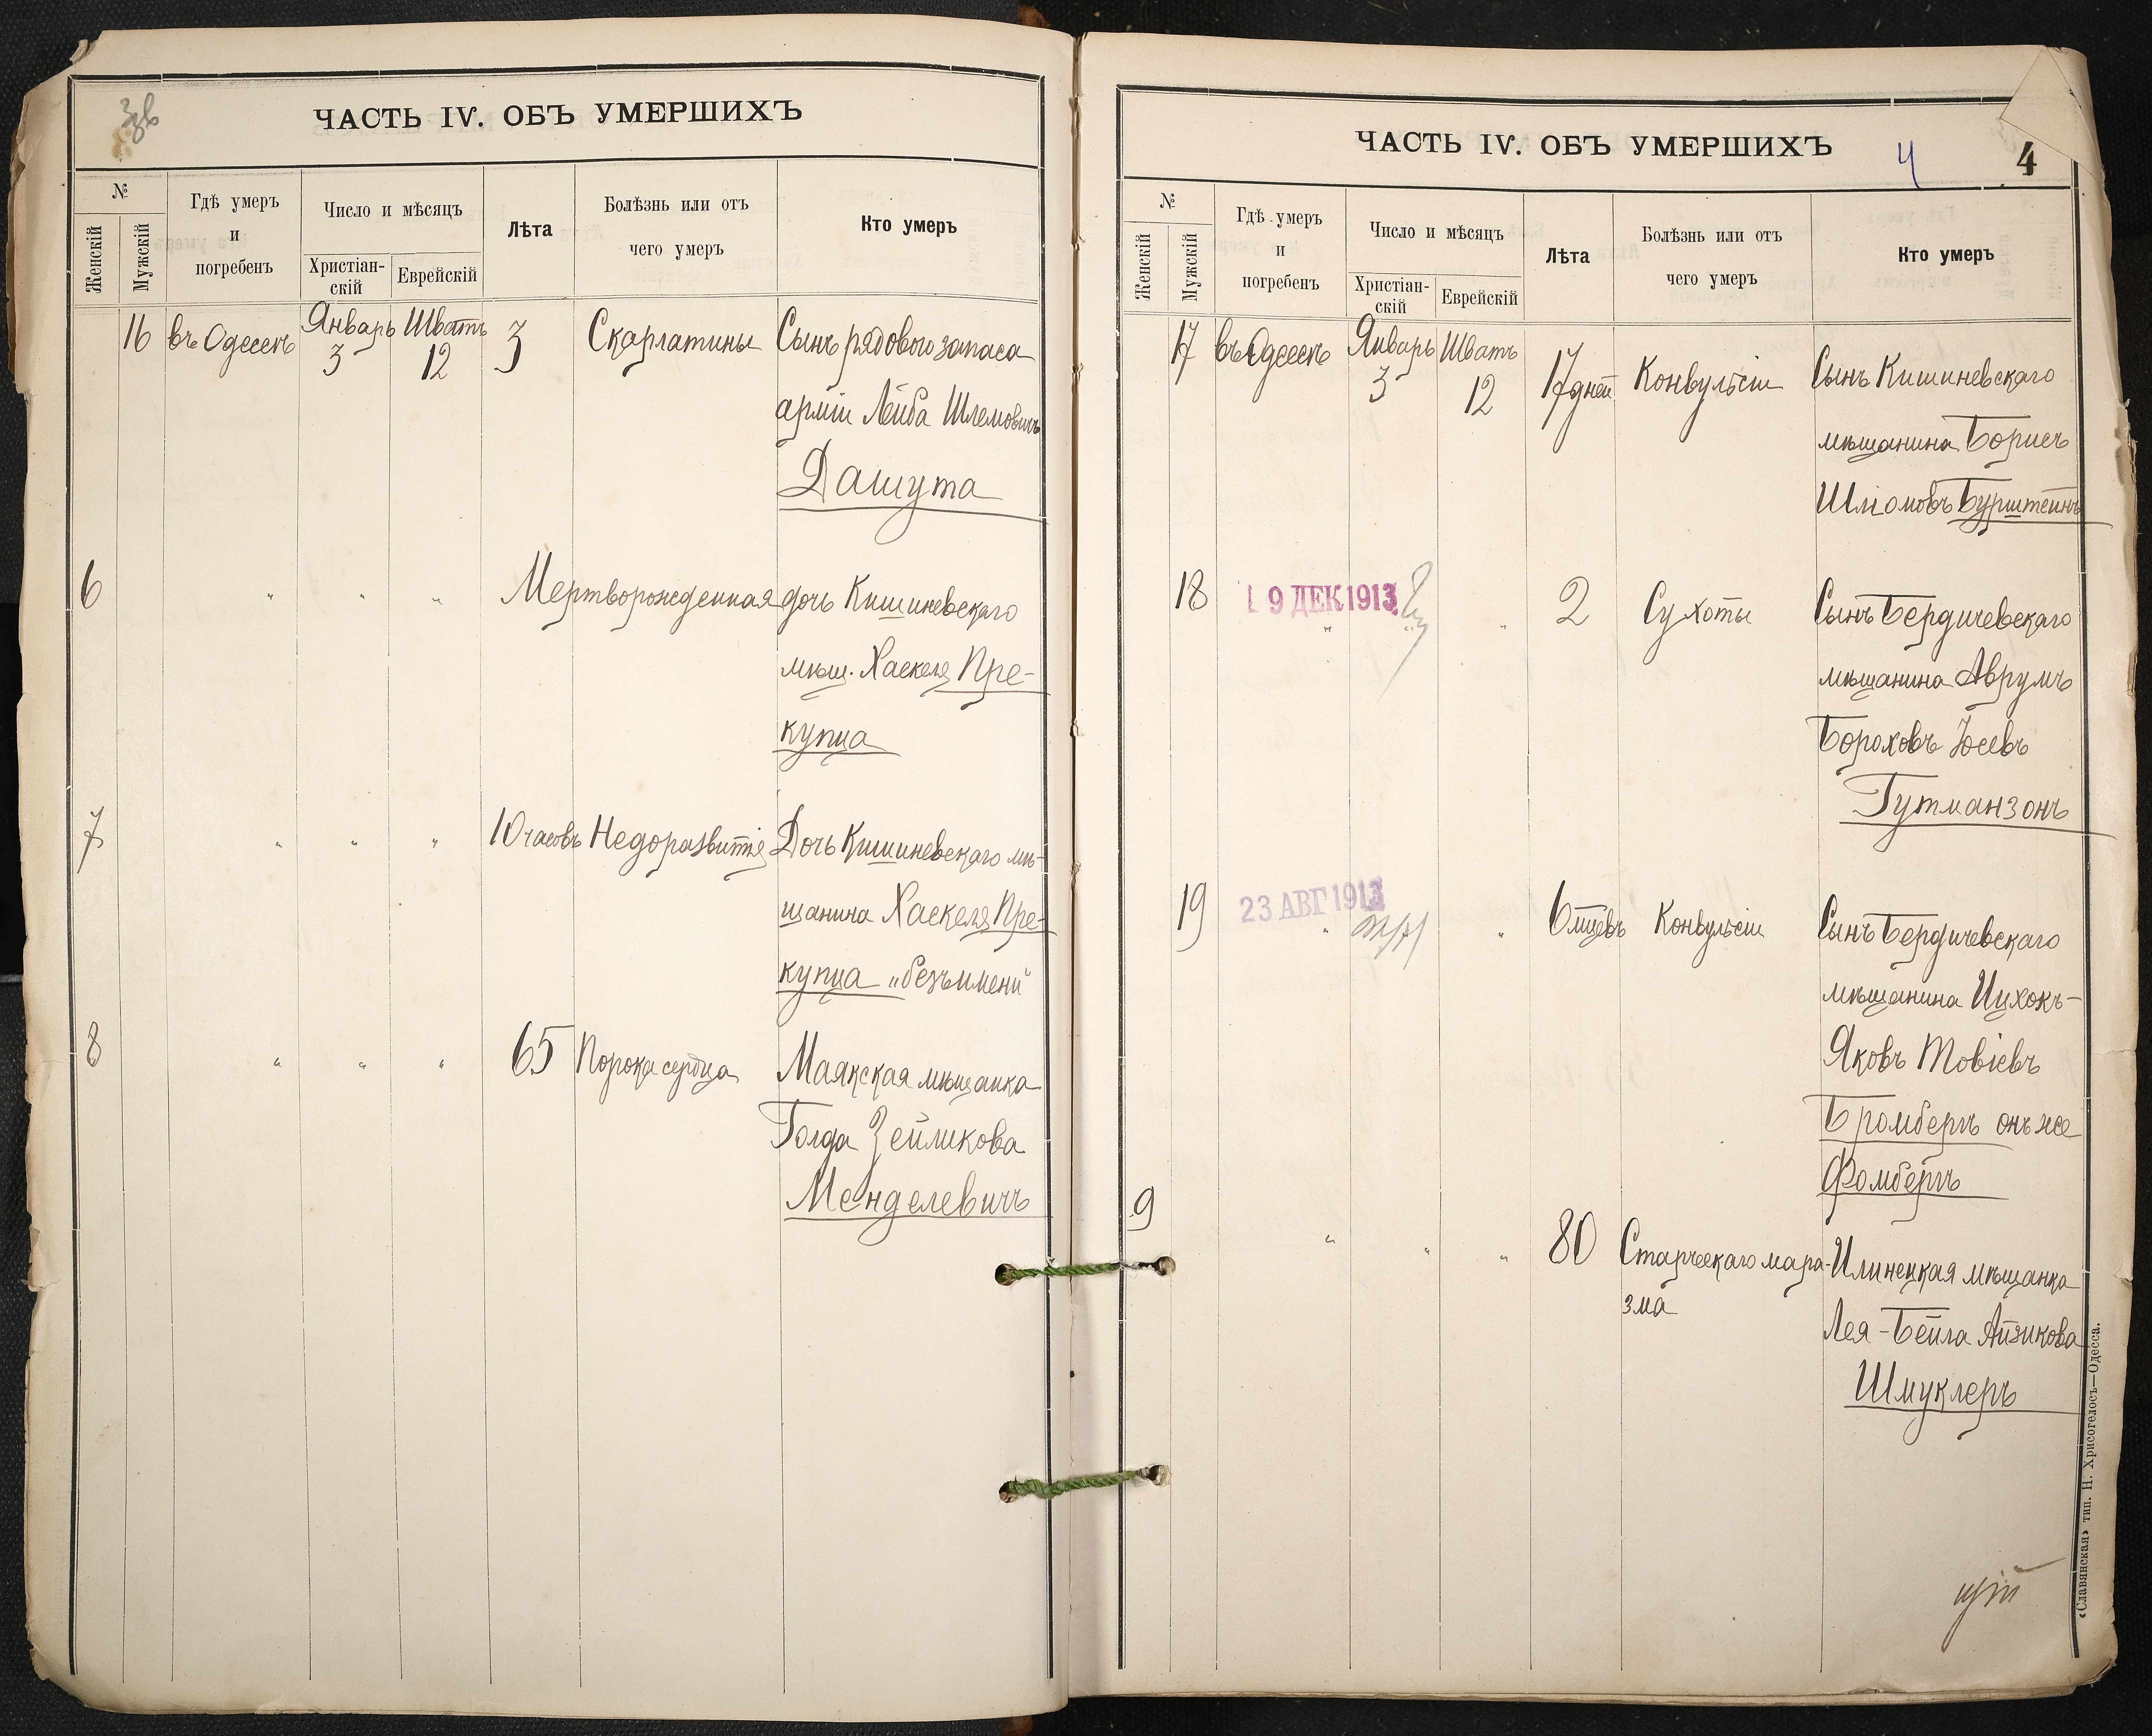 Зв
ЧАСТЬ IV. ОБЪ УМЕРШИХЪ
№
Женскій
Мужскій
Гдѣ умеръ
и
погребенъ
Число и мѣсяцъ
Христіан-
скій
Еврейскій
Лѣта
Болѣзнь или отъ
чего умеръ
Кто умеръ
16 въ Одессѣ Январь 3 Шватъ 12 3 Скарлатины Сынъ рядового запаса
арміи Лейба Шлемовичъ
Дашута
6 " " " Мертворожденная дочь Кишиневскаго
мѣщ. Хаскеля Пре-
купца
7 " " " 10 часовъ Недоразвитія Дочь Кишиневскаго мѣ-
щанина Хаскеля Пре-
купца „безъ имени"
8 " " " 65 Порока сердца Маякская мѣщанка
Голда Зейликова
Менделевичъ
ЧАСТЬ IV. ОБЪ УМЕРШИХЪ
4
4
№
Женскій
Мужскій
Гдѣ умеръ
и
погребенъ
Число и мѣсяцъ
Христіан-
скій
Еврейскій
Лѣта
Болѣзнь или отъ
чего умеръ
Кто умеръ
17 въ Одессѣ Январь 3 Шватъ 12 17 дней Конвульсіи Сынъ Кишиневскаго
мѣщанина Борисъ
Шліомовъ Бурштейнъ
18 9 ДЕК 1913 " " " 2 Сухоты Сынъ Бердичевскаго
мѣщанина Аврумъ
Бороховъ Іосевъ
Гутманзонъ
19 23 АВГ 1913 " " 6 мцевъ Конвульсіи Сынъ Бердичевскаго
мѣщанина Ицхокъ-
Яковъ Товіевъ
Бромбергъ онъ же
Фомбергъ
9 " " " 80 Старческаго мара- Илинецкая мѣщанка
зма
Лея-Бейла Айзикова
Шмуклеръ
«Славянская» тип. Н. Хрисогелосъ—Одесса.